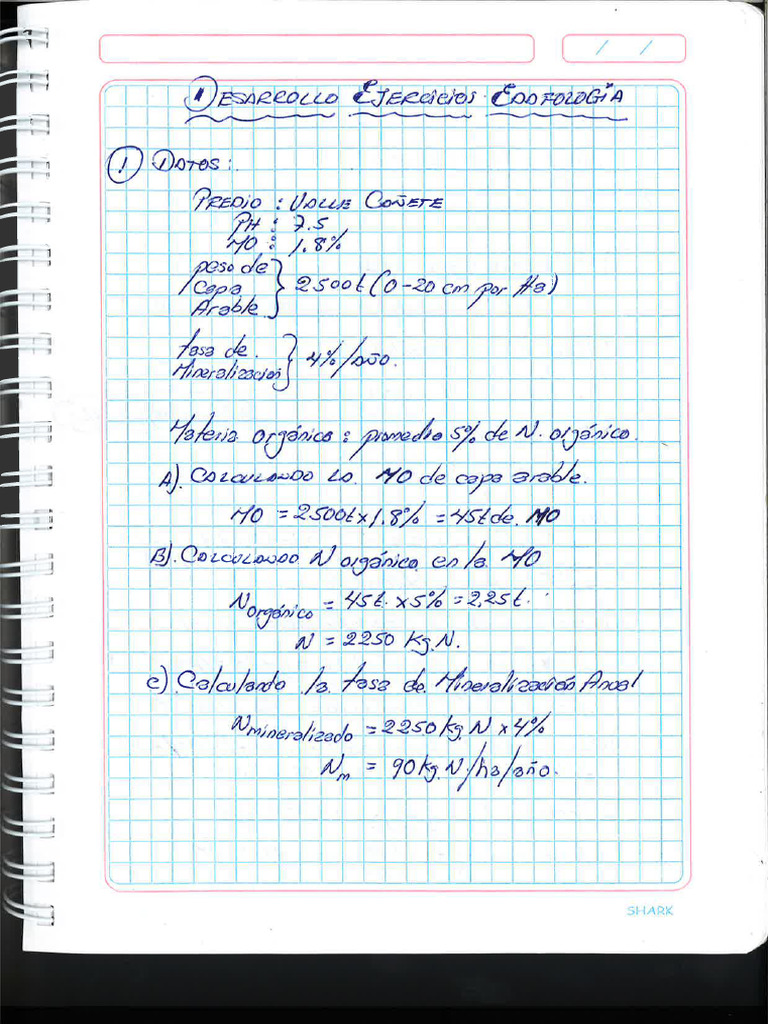 / /
Desarrollo Ejercicios Edafología
1 Datos:
Predio : Valle Cañete
PH : 7.5
MO : 1.8%
peso de
Capa } 2500t (0-20 cm por Ha)
Arable
tasa de
Mineralización } 4%/año.
Materia orgánica : promedio 5% de N. orgánico.
A). Calculando la MO de capa arable.
MO = 2500t x 1.8% = 45t de MO
B). Calculando N orgánico en la MO
N orgánico = 45t. x 5% = 2,25t.
N = 2250 Kg.N.
c) Calculando la tasa de Mineralización Anual
N mineralizado = 2250 kg. N x 4%
Nm = 90 kg. N/ha/año.
SHARK